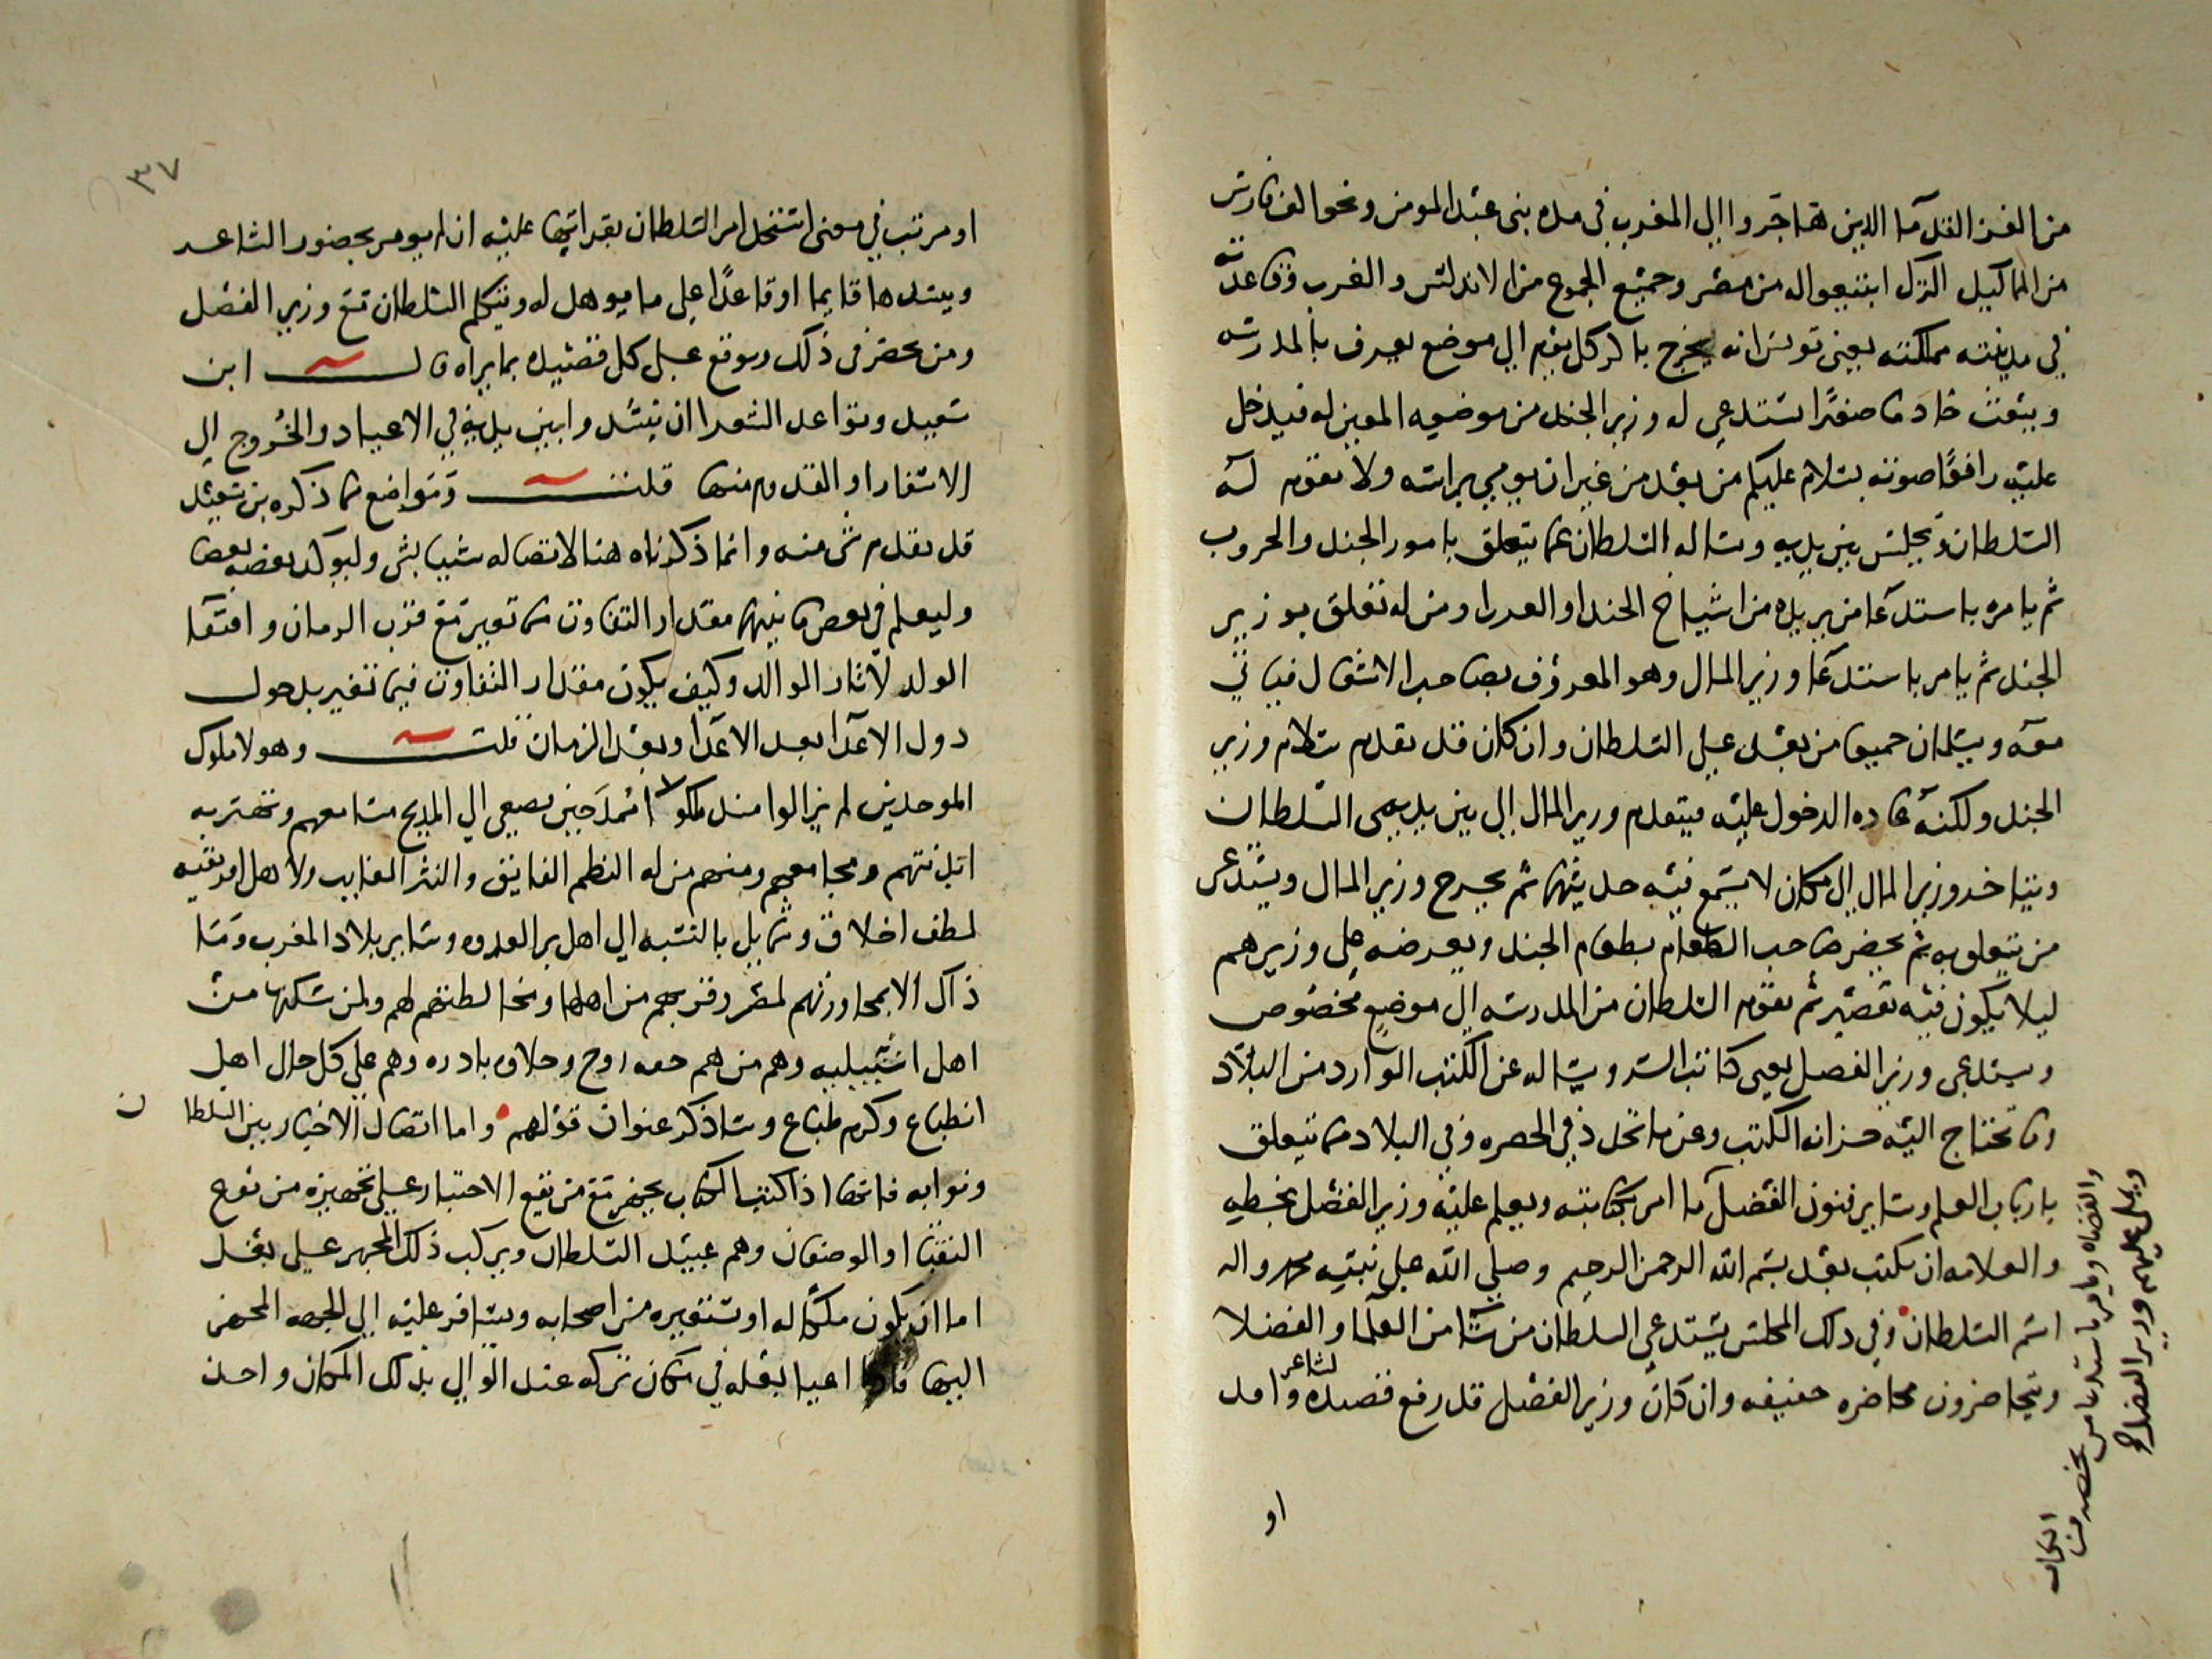 من الغز القدآما الدين هاجروا الى المغرب في مده بنى عبد المومن ونحو الف فارس
من المماليك الترك ابتيعوا له من مصر وجميع الجموع من الاندلس والغرب وقاعدته
في مدينته مملكته يعنى تونس انه يخرج باكر كل يوم الى موضع يعرف بالمدرسه
ويبعث خادما صغيرا يستدعى له وزير الجند من موضعه المعين له فيدخل
عليه رافعا صوته بسلام عليكم من بعد من غير ان يومي براسه ولا يقوم له
السلطان ويجلس بين يديه وساله السلطان عما يتعلق بامور الجند والحروب
ثم يامره باستدعا من يريده من اشياخ الجند او العرب او من له تعلق بوزير
الجند ثم يامر باستدعا وزير المال وهو المعروف بصاحب الاشغال فياتي
معه ويسلمان جميعا من بعد على السلطان وان كان قد تقدم سلام وزير
الجند ولكنه عاده الدخول عليه فيتقدم وزير المال الى بين يدي السلطان
ويتاخر وزير المال الى مكان لا يسمع فيه حديثهما ثم يخرج وزير المال ويستدعى
من يتعلق به ثم يحضر صاحب الطعام بطعام الجند ويعرضه على وزيرهم
ليلا يكون فيه تقصير ثم يقوم السلطان من المدرسه الى موضع مخصوص
ويستدعى وزير الفضل يعنى كاتب السر ويساله عن الكتب الوارده من البلاد
وما تحتاج اليه خزانه الكتب وعن ما تجدد في الحضره وفي البلاد مما يتعلق
بارباب العلم وساير فنون الفضل
والقضاه ويامر باستدعا من يخصه من الكتاب
ويملى عليهم وزير الفضل
ما امر بكتابته ويعلم عليه وزير الفضل بخطه
والعلامه ان يكتب بعد بسم الله الرحمن الرحيم وصلى الله على نبيه محمد واله
اسم السلطان وفي ذلك المجلس يستدعى السلطان من شا من العلما والفضلا
ويتحاضرون محاضره خفيفه وان كان وزير الفضل قد رفع قصيده لشاعر وافد
او
٣٧
او مرتب في معنى استنجل امر السلطان بقراتها عليه ان لم يومر بحضور الشاعر
وينشدها قايما او قاعدا على ما يوهل له ويتكلم السلطان مع وزير الفضل
ومن يحضر في ذلك ويوقع على كل قصيده بما يراه قال ابن
سعيد وقواعد الشعرا ان ينشدوا بين يديه في الاعياد والخروج الى
الاسفار او القدوم منها قلت ومواضع مما ذكره بن سعيد
قد تقدم شى منه وانما ذكرناه هنا لاتصاله شيا بشى وليوكد بعضه بعضا
وليعلم في بعض ما بينهما مقدار التفاوت مما تغير مع قرب الزمان واقتفا
الولد لاثار الوالد وكيف يكون مقدار التفاوت فيما تغير بدخول
دول الاعدا بعد الاعدا وبعد الزمان قلت وهولا ملوك
الموحدين لم يزالوا منذ ملكوا ممدحين تصغى الى المديح مسامعهم وتهتز به
انديتهم ومجامعهم ومنهم من له النظم الفايق والنثر الغايب ولاهل افريقيه
لطف اخلاق وشمايل بالنسبه الى اهل بر العدوه وساير بلاد المغرب وما
ذاك الا بمجاورتهم لمصر وقربهم من اهلها ومخالطتهم لهم ولمن سكنها من
اهل اشبيليه وهم من هم خفه روح وحلاوه بادره وهم على كل حال اهل
انطباع وكرم طباع وساذكر عنوان قولهم واما اتصال الاخبار بين السلطان
ونوابه فانها اذا كتب الكتاب يجهز مع من يقع الاختيار على تجهيزه من نوع
النقبا او الوصفان وهم عبيد السلطان ويركب ذلك المجهز على بغل
اما ان يكون ملكا له او يستعيره من اصحابه ويسافر عليه الى الجهه المجهز
اليها فاذا اعيا بغله في مكان تركه عند الوالي بذلك المكان واخذ